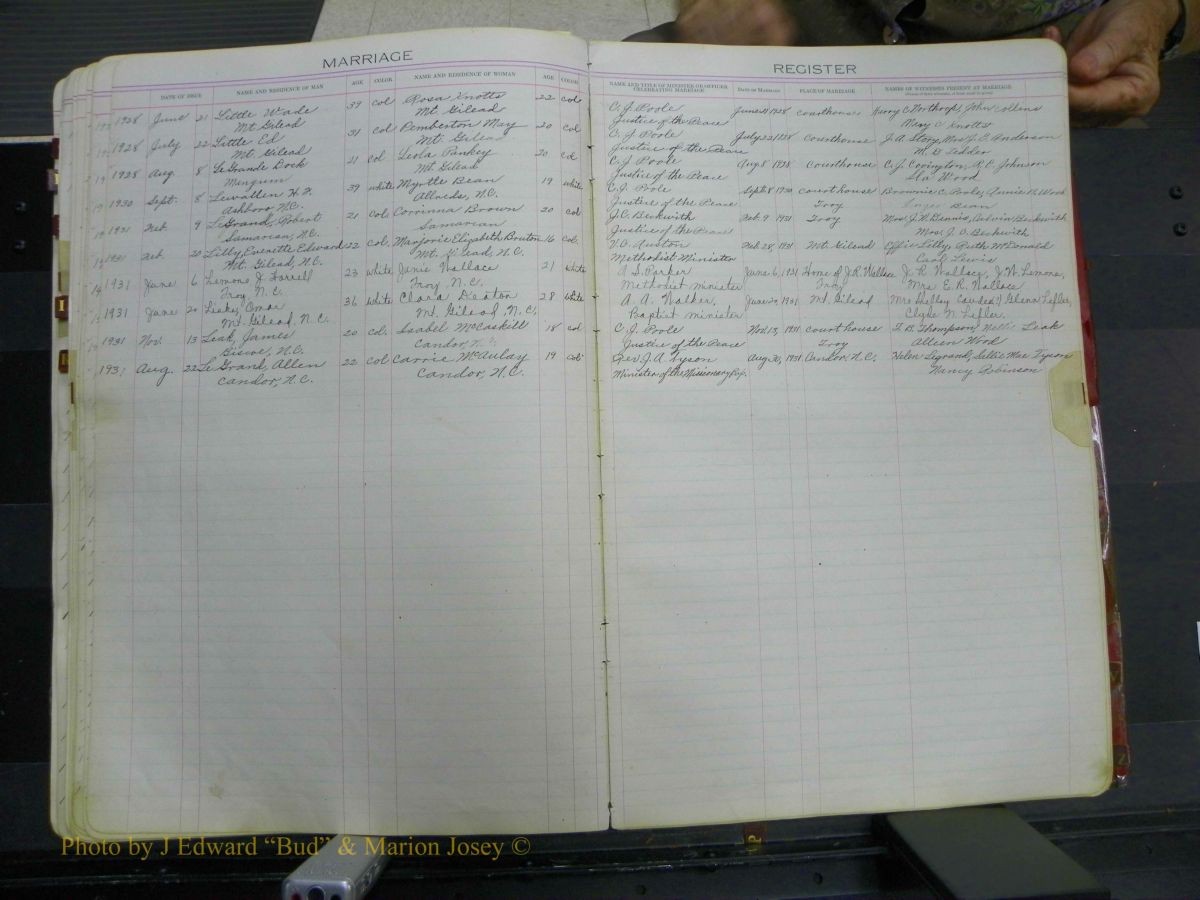 MARRIAGE
DATE OF ISSUE NAME AND RESIDENCE OF MAN AGE COLOR NAME AND RESIDENCE OF WOMAN AGE COLOR
1928 June 21 Little Wade 39 col Rosa Knotts 22 col
Mt. Gilead Mt. Gilead
1928 July 22 Little Ed 31 col Pemberton May 20 col
Mt. Gilead Mt. Gilead
1928 Aug. 8 Le Grande Dock 21 col Leola Pankey 20 col
Mt. Gilead
1930 Sept. 8 39 white Myrtle Bean 19 white
Ashboro N.C. N.C.
1931 Feb. 9 LeGrand, Robert 21 col. Corrinna Brown 20 col
Samarian, N.C. Samarian
1931 Feb. 20 Lilly, Everette Edward 22 col. Marjorie Elizabeth Bruton 16 col.
Mt. Gilead, N.C. Mt. Gilead, N.C.
1931 June 6 Lemons J. Harrell 23 white Janie Wallace 21 white
Troy, N.C. Troy N.C.
1931 June 20 Omar 36 white Clara Deaton 28 white
Mt. Gilead, N.C. Mt. Gilead, N.C.
1931 Nov. 13 Leak, James 20 col. Isabel McCaskill 18 col
Biscoe, N.C. Candor
193 Aug. 22 Le Grand, Allen 22 col Carrie McAulay 19 col
Candor, N.C. Candor, N.C.
REGISTER
NAME AND TITLE OF MINISTER OR OFFICER CELEBRATING MARRIAGE DATE OF MARRIAGE PLACE OF MARRIAGE NAMES OF WITNESSES PRESENT AT MARRIAGE
C. J. Poole June 21 1928 courthouse Harry C. Northrop, John Collens
Justice of the Peace Mary C. Knotts
C. J. Poole July 22 1928 Courthouse J. A. Story, Mrs. J. E. Anderson
Justice of the Peace
C. J. Poole Aug 8 1928 Courthouse C. J. Covington, R. E. Johnson
Justice of the Peace Wood
C. J. Poole Sept 8 1930 court house Brownie C. Poole, Annie B. Wood
Justice of the Peace Troy Bean
J. C. Beckwith Feb. 9 1931 Troy Mrs. J. W. Dennis, Calvin Beckwith
Justice of the Peace Mrs. J. C. Beckwith
V. O. Auston Feb 28, 1931 Mt. Gilead Effie Lilly, Ruth McDonald
Methodist Minister Carl Lewis
A S. Parker June 6, 1931 Home of J. R. Wallace J. R. Wallace, J. W. Lemons,
Methodist minister Troy Mrs. E. R. Wallace
A. A. Walker, June 20, 1931 Mt. Gilead Mrs Glenn Lefler,
Baptist minister Clyde N. Lefler.
C. J. Poole Nov. 13, 1931 court house Thompson Nellie Leak
Justice of the Peace Troy Alleen Wood
Rev. J. A. Tyson Aug 30, 1931 Candor, N.C. Helen Legrand, Sallie Mae Tyson
Minister of the Missionary Bap. Nancy Robinson
Photo by J Edward “Bud” & Marion Josey ©